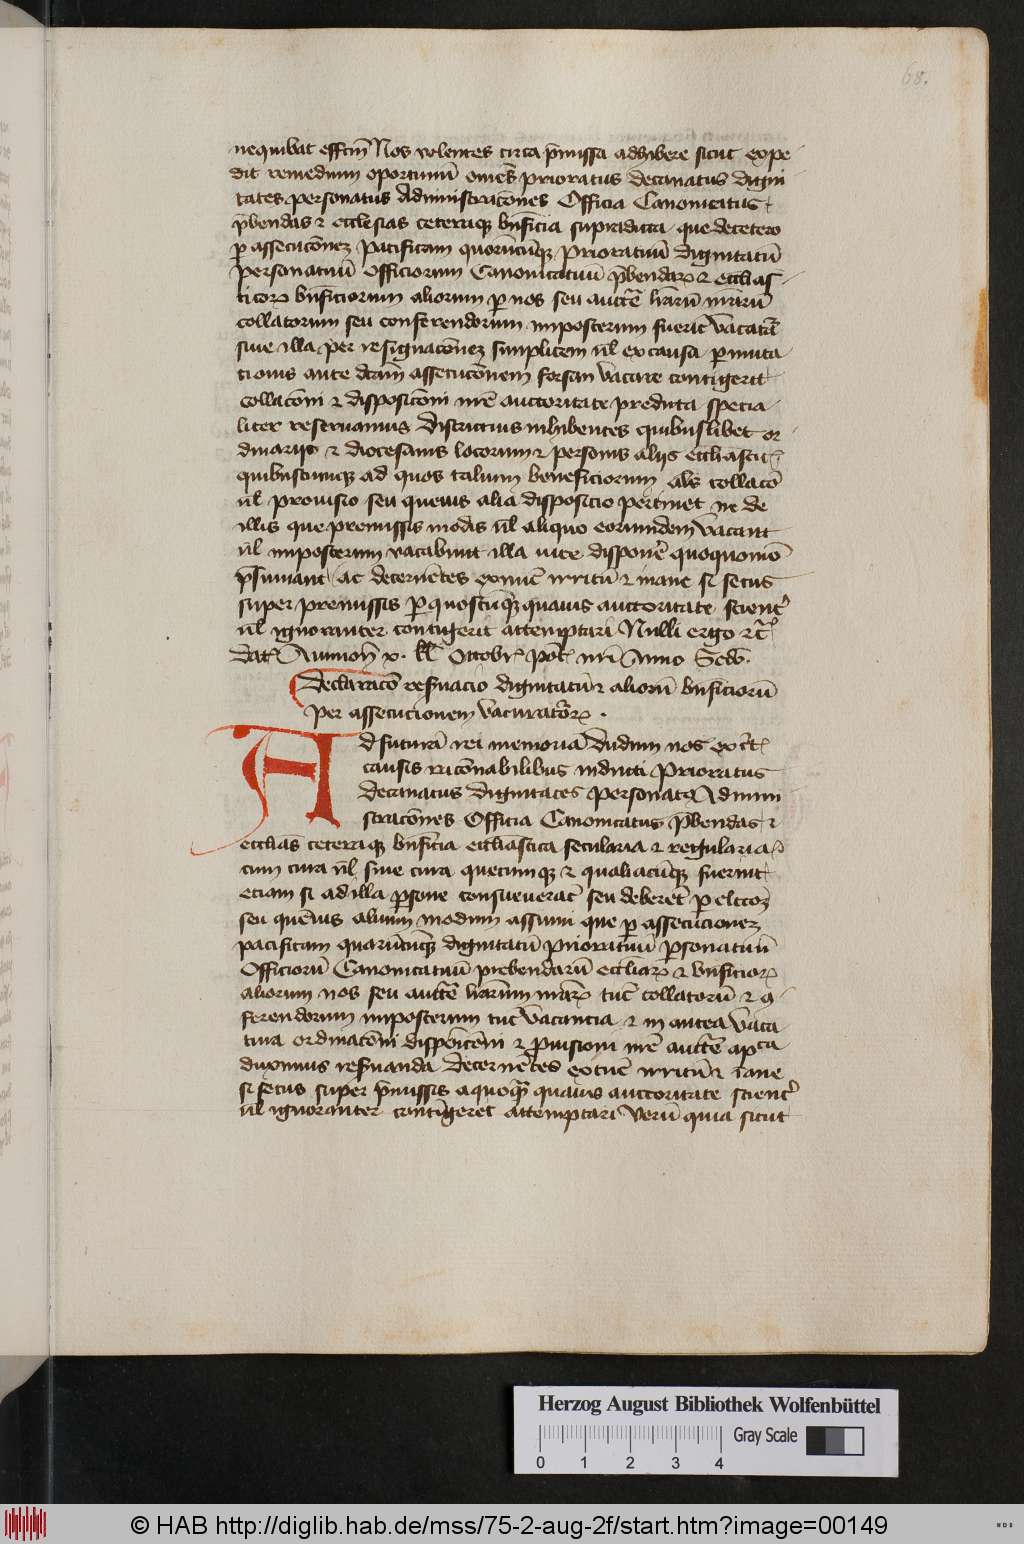 68.
nequibat effcm̄ Nos volentes circa p̄missa adhibere sicut expe
dit remedium oportunū om̄es prioratus decanatus digni
tates personatus Administracōnes Officia Canonicatus
p̄bendas ⁊ ecclesias ceterisq̨ bn̄ficia supradicta que decetero
ꝑ assecucōnez pacificam quorūcūq̨ prioratuū dignitatū
personatuū officiorum Canonicatuū p̄bendaꝝ ⁊ eccl̄ias
ticoꝝ bn̄ficiorum aliorum ꝑ nos seu auctē l̄rarū n̄rarū
collatorum seu conferendorum imposterum fuerīt vacatuā
siue illa per resignacōnez simplicem ul̄ ex causa ꝑmuta
tionis ante dictām assecucōnem forsan vacare contigerit
collacōni ⁊ disposicōni n̄re auctoritate predicta specia
liter reseruamus Districtius inhibentes quibuslibet or
dinarijs ⁊ diocesanis locorum ⁊ personis alijs eccl̄iasticꝭ
quibuscumq̨ ad quos talium beneficiorum collacō
ul̄ prouisio seu queuis alia disposicio pertinet ne de
illis que premissis modis ul̄ aliquo eorundem vacant
ul̄ imposterum vacabunt illa vice disponē quoquomō
p̄sumant ac decernētes exnūc irritū ⁊ inane si secus
super premissis ꝑ quoscūq̨ quauis auctoritate scientꝭ
ul̄ ignoranter contigerit attemptari Nulli ergo ⁊c̄
Dat Auinion̄ x. kl̄ Octobrꝭ pōt n̄ri Anno Scdō.
Declaracō res̄uacio dignitatū ⁊ aliorū bn̄ficiorū
per assecucionem vacaturoꝝ .
Ad futurā rei memoriā Dudum nos ex cert̄
causis r̄acōnabilibus inducti prioratus
decanatus dignitates personatꝰ Admini
stracōnes Officia Canonicatus p̄bendas ⁊
eccl̄ias ceteraq̨ bn̄ficia eccl̄iastica secularia ⁊ regularia
cum cura ul̄ sine cura quecumq̨ ⁊ qualiacūq̨ fuerint
etiam si ad illa ꝑsone consueuerāt seu deberēt ꝑ elecco᷒z
seu quēuis alium modum assumi que ꝑ assecucionez
pacificam quarūcūq̨ dignitatū prioratuū ꝑsonatuū
Officiorū Canonicatuū prebendarū eccl̄iaꝝ ⁊ bn̄ficioꝝ
aliorum nos seu auctē l̄rarum n̄raꝝ tūc collatorū ⁊ ꝯ
ferendorum imposterum tūc vacancia ⁊ in antea vaca
tura ordinacōni disposicōni ⁊ ꝓuisioni n̄re auctē ap̄ca
duximus res̄uanda Decernētes extūc irritū ⁊ īane
si secus super p̄missis a quoq̄ꝫ quauis auctoritate scientꝭ
ul̄ ignoranter contīgeret attemptari Verū quia sicut
Herzog August Bibliothek Wolfenbüttel
Gray Scale
0 1 2 3 4
© HAB http://diglib.hab.de/mss/75-2-aug-2f/start.htm?image=00149